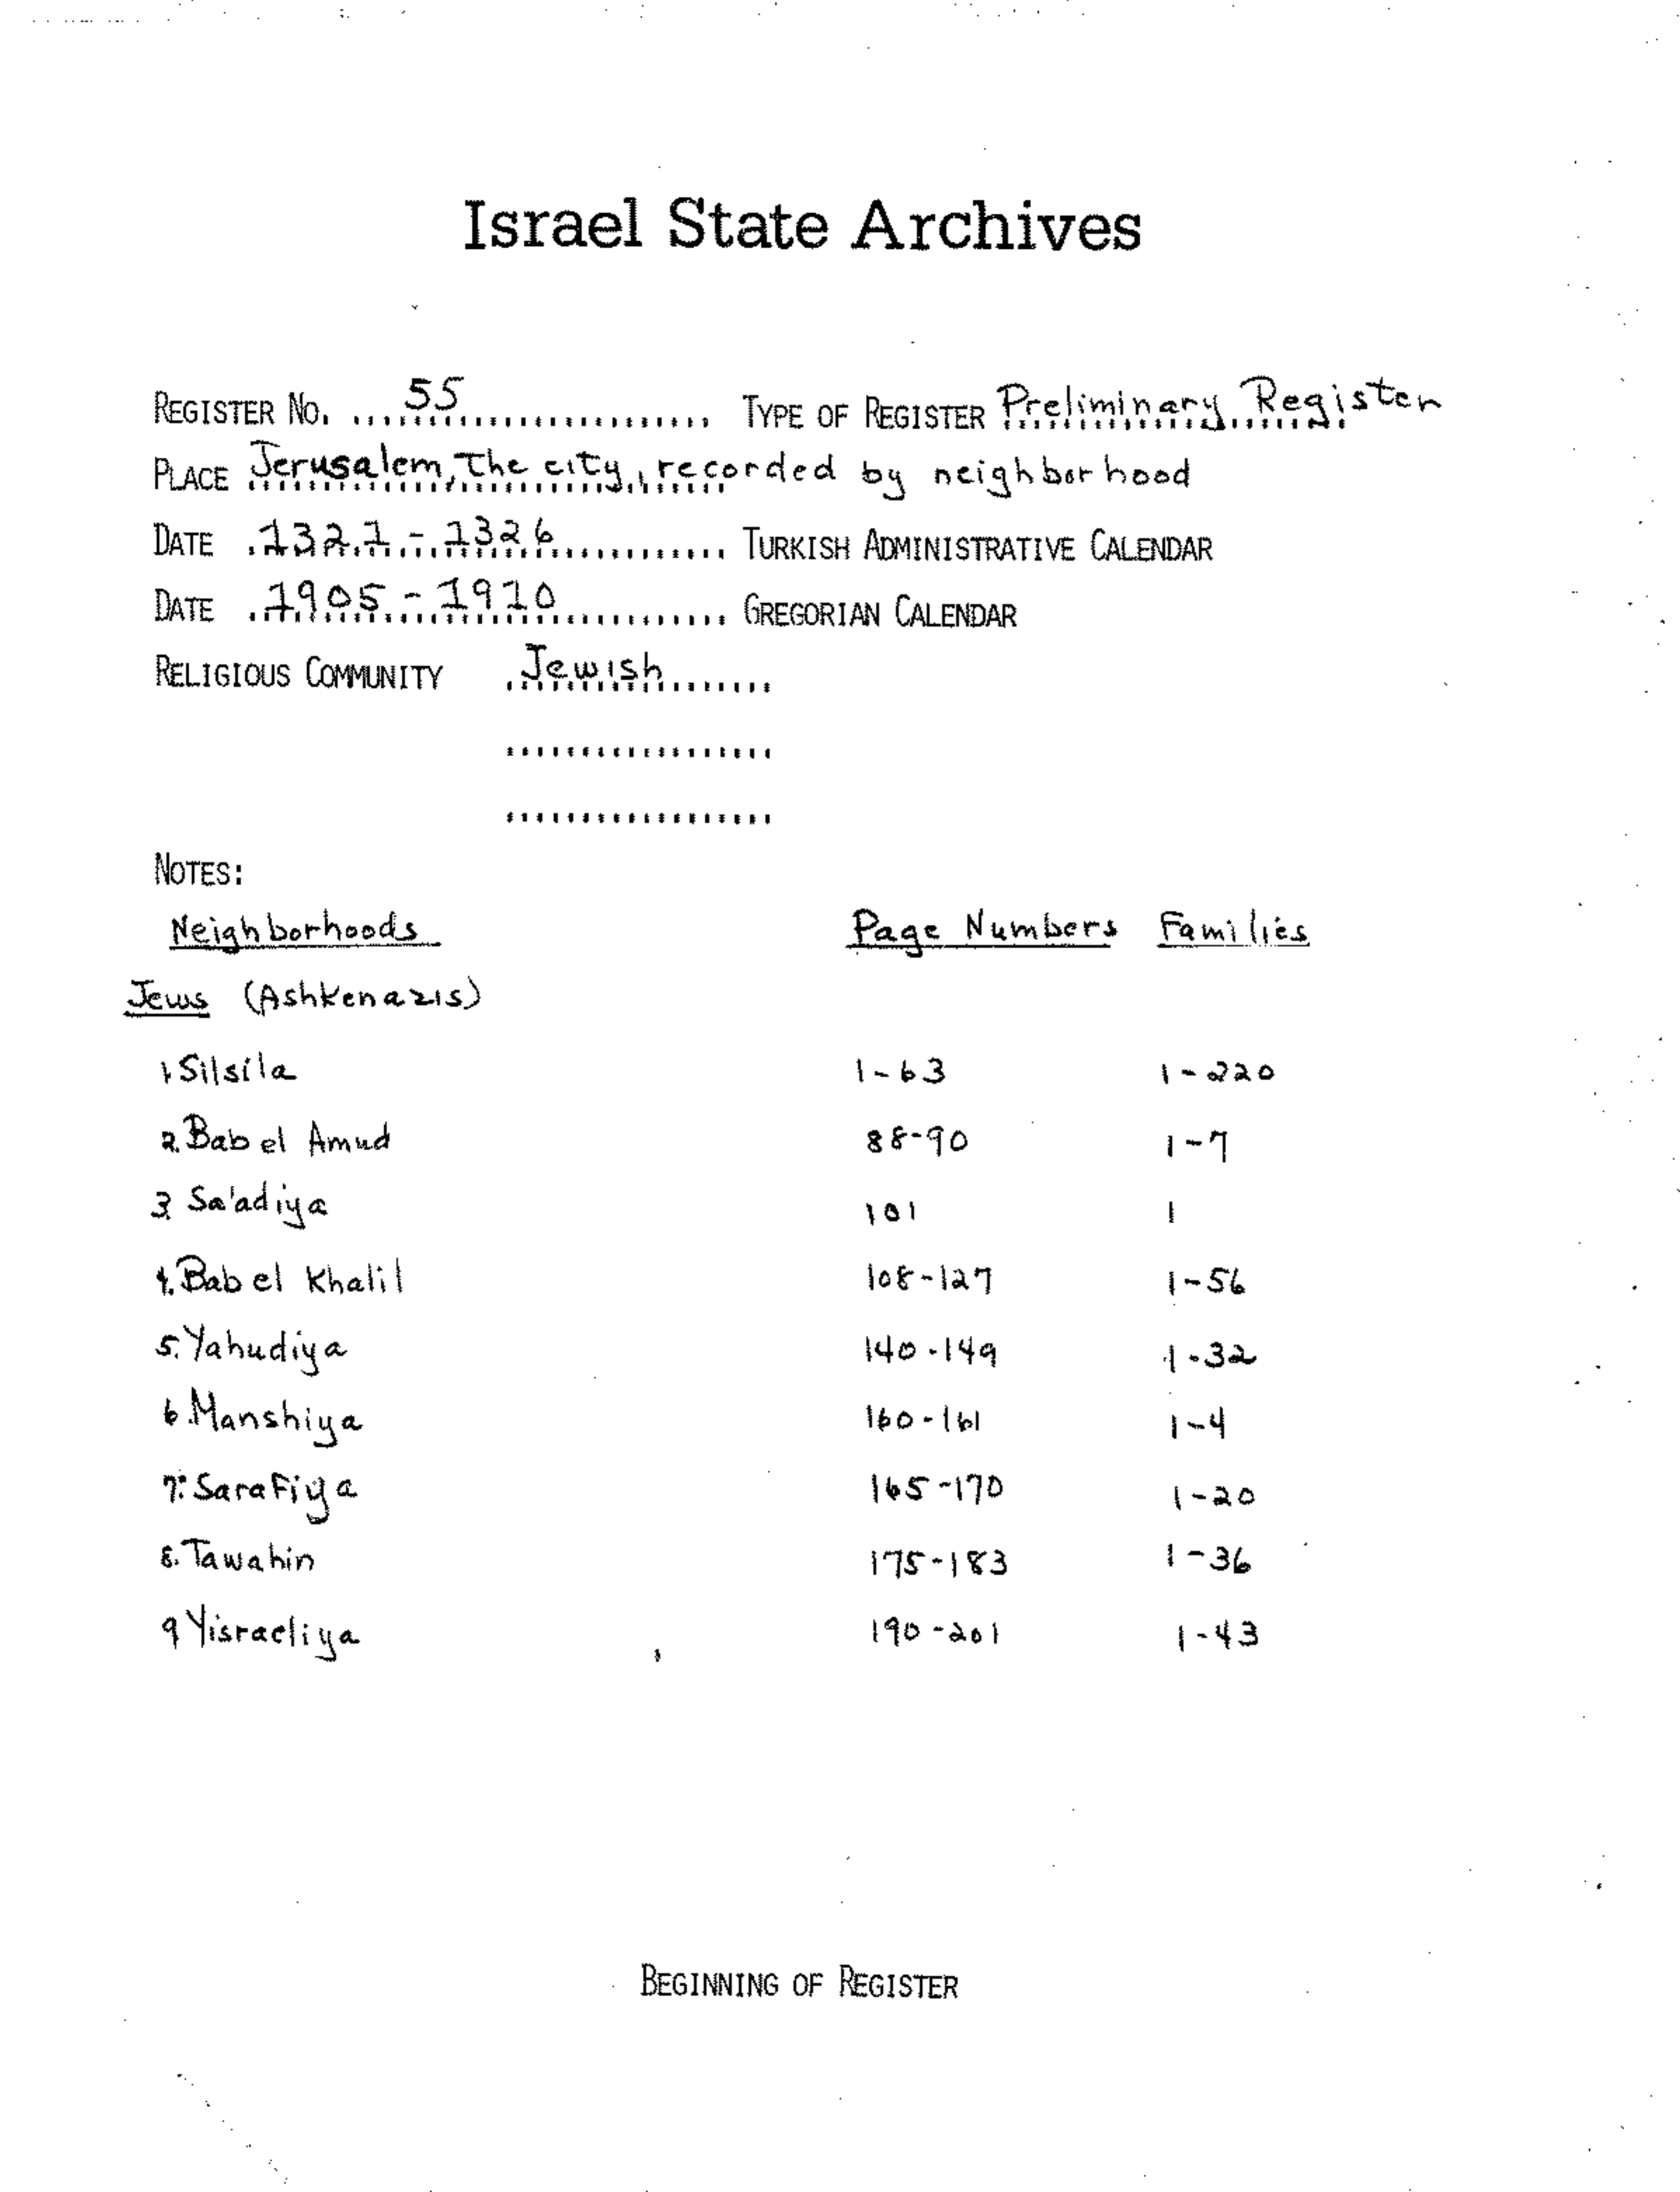 Israel State Archives
REGISTER NO. 55 TYPE OF REGISTER Preliminary Register
PLACE Jerusalem, The city, recorded by neighborhood
DATE 1321 - 1326 TURKISH ADMINISTRATIVE CALENDAR
DATE 1905 - 1910 GREGORIAN CALENDAR
RELIGIOUS COMMUNITY Jewish
NOTES:
Neighborhoods Page Numbers Families
Jews (Ashkenazis)
1. Silsila 1-63 1-220
2. Bab el Amud 88-90 1-7
3. Sa'adiya 101 1
4. Bab el Khalil 108-127 1-56
5. Yahudiya 140-149 1-32
6. Manshiya 160-161 1-4
7. Sarafiya 165-170 1-20
8. Tawahin 175-183 1-36
9 Yisraeliya 190-201 1-43
BEGINNING OF REGISTER